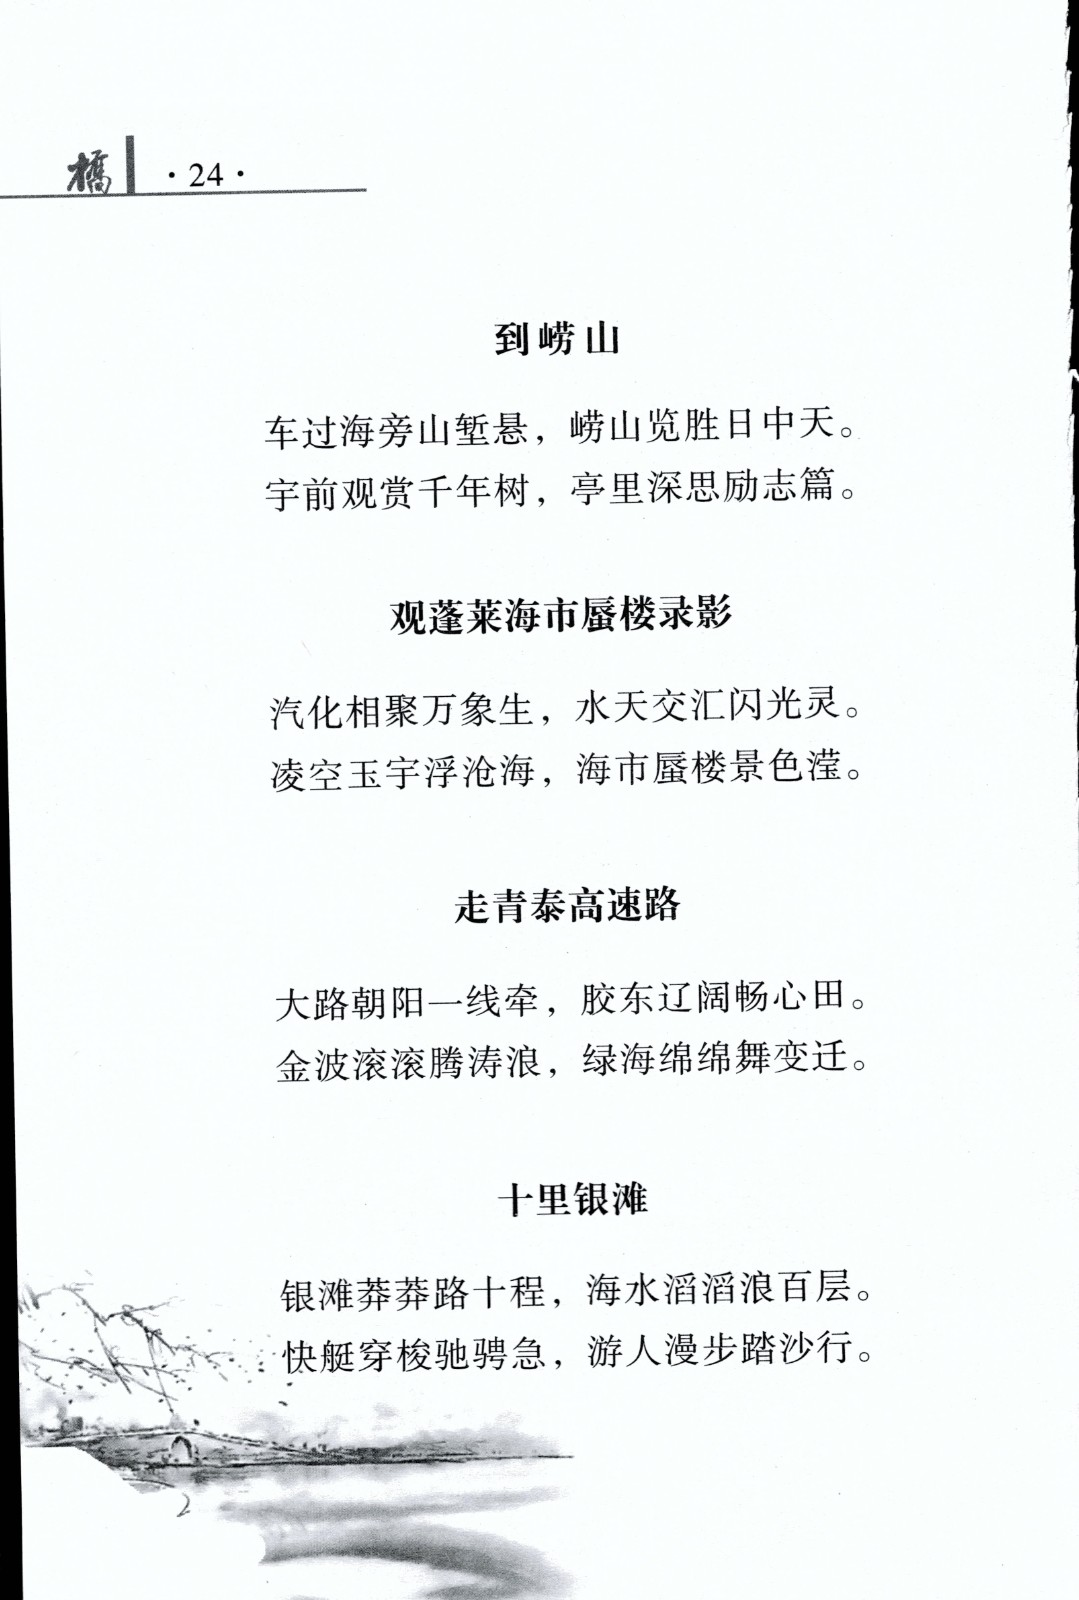 橋 ·24·
到崂山
车过海旁山堑悬，崂山览胜日中天。
宇前观赏千年树，亭里深思励志篇。
观蓬莱海市蜃楼录影
汽化相聚万象生，水天交汇闪光灵。
凌空玉宇浮沧海，海市蜃楼景色滢。
走青泰高速路
大路朝阳一线牵，胶东辽阔畅心田。
金波滚滚腾涛浪，绿海绵绵舞变迁。
十里银滩
银滩莽莽路十程，海水滔滔浪百层。
快艇穿梭驰骋急，游人漫步踏沙行。